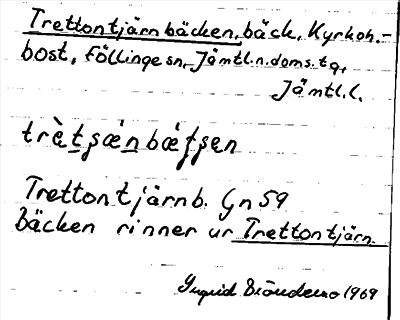 Trettontjärnbäcken, bäck, Kyrkoh.-
bost., Föllinge sn, Jämtl.n.doms.tg,
Jämtl.l.
Trettontjärnb. Gn 59
Bäcken rinner ur Trettontjärn.
Ingrid 1969